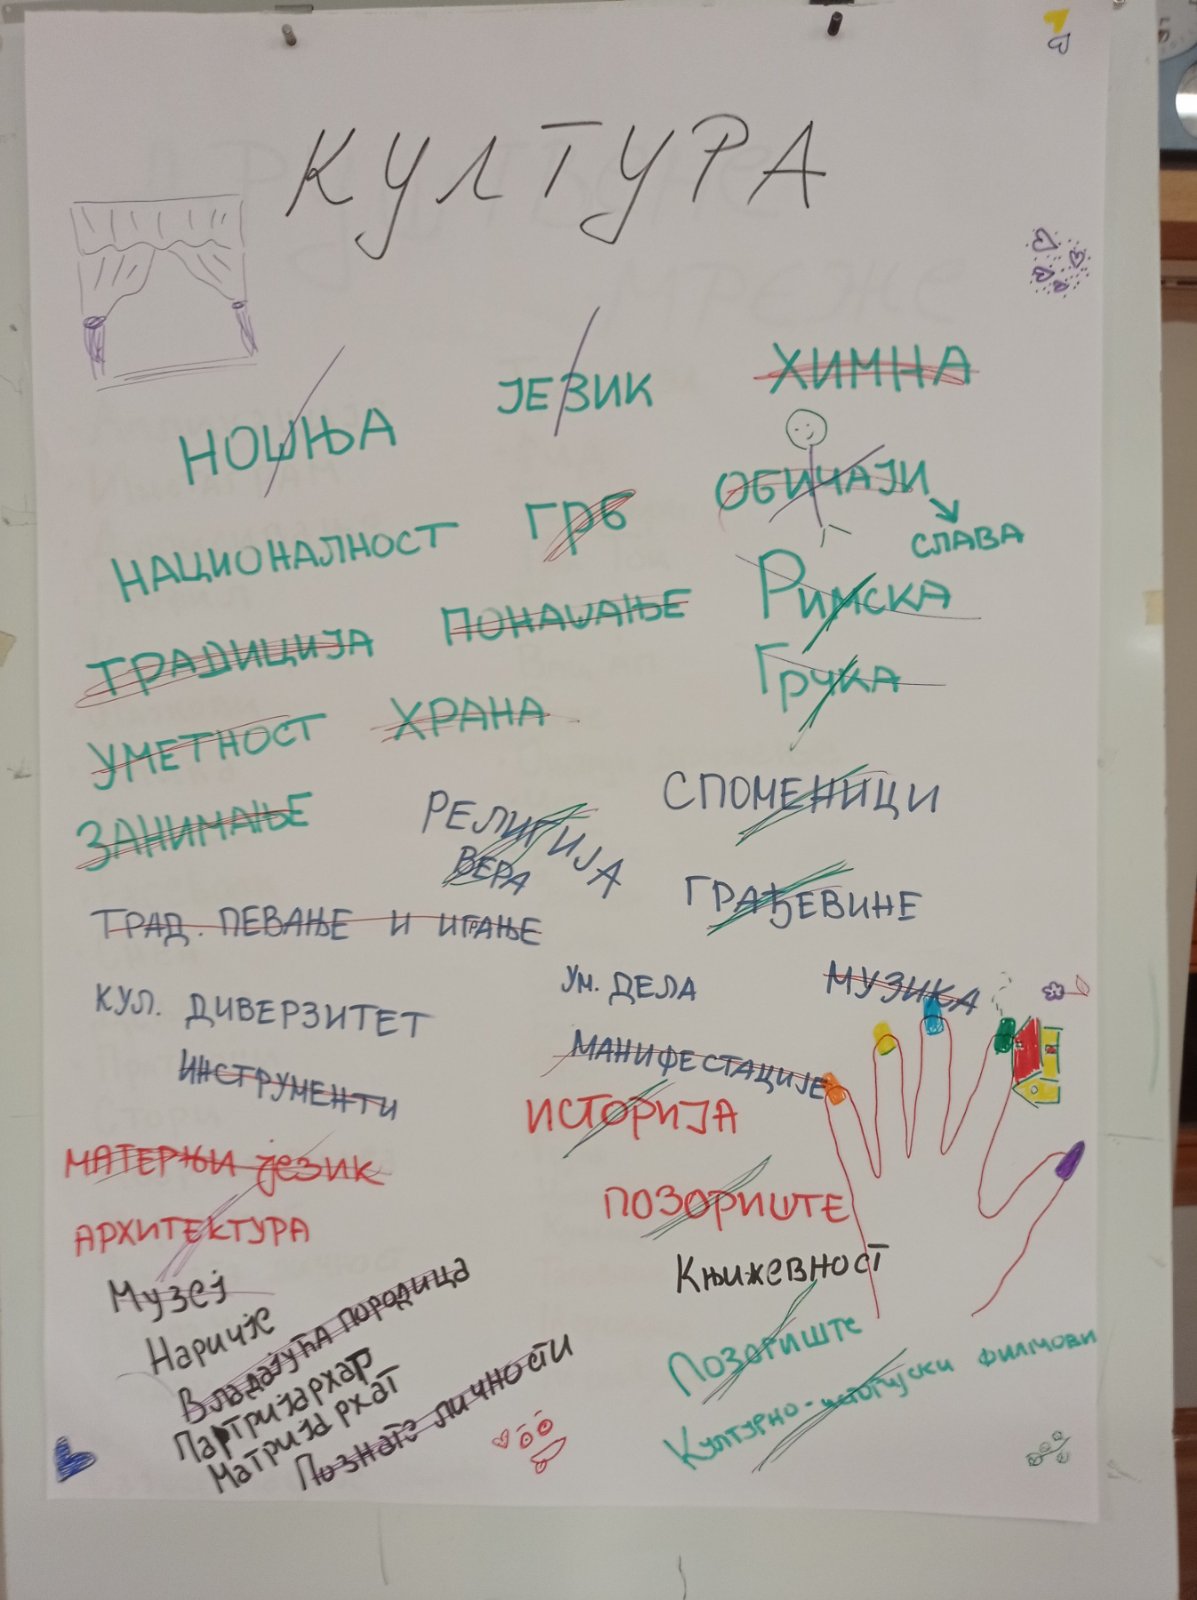 КУЛТУРА
НОШЊА
ЈЕЗИК
ХИМНА
НАЦИОНАЛНОСТ
ГРБ
ОБИЧАЈИ
СЛАВА
ТРАДИЦИЈА
ПОНАШАЊЕ
РИМСКА
УМЕТНОСТ
ХРАНА
ГРЧКА
ЗАНИМАЊЕ
РЕЛИГИЈА
ВЕРА
СПОМЕНИЦИ
ГРАЂЕВИНЕ
ТРАД. ПЕВАЊЕ И ИГРАЊЕ
КУЛ. ДИВЕРЗИТЕТ
УМ. ДЕЛА
МУЗИКА
ИНСТРУМЕНТИ
МАНИФЕСТАЦИЈЕ
ИСТОРИЈА
МАТЕРЊИ ЈЕЗИК
АРХИТЕКТУРА
ПОЗОРИШТЕ
Музеј
Књижевност
Наричје
Владајућа породица
Партријархар
Матријархат
Познате личности
Позориште
Културно-историјски филмови